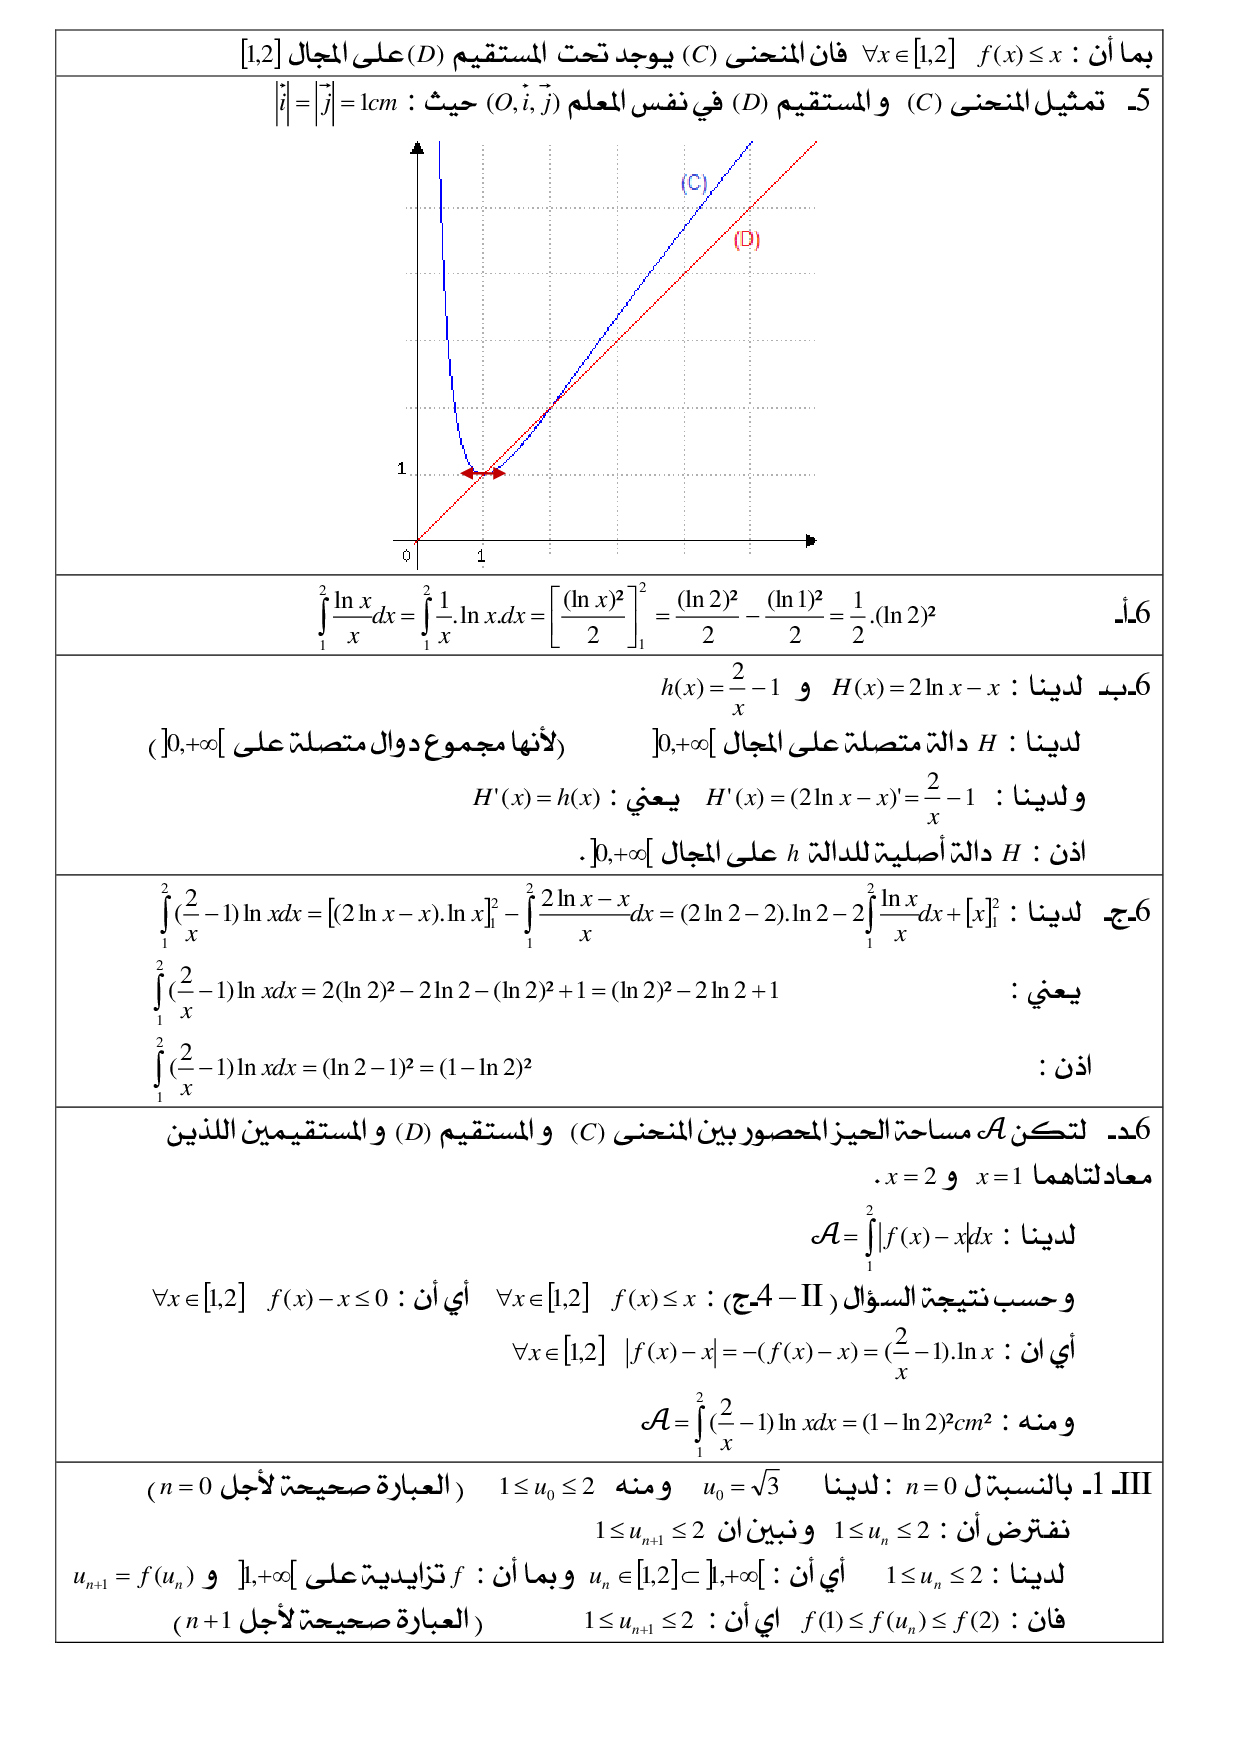 بما أن : ∀x∈[1,2] f(x) ≤ x فان المنحنى (C) يوجد تحت المستقيم (D) على المجال [1,2]
5ـ تمثيل المنحنى (C) و المستقيم (D) في نفس المعلم (O, i⃗, j⃗) حيث : |i⃗| = |j⃗| = 1cm
(C)
(D)
1
0 1
6ـأـ ∫₁² (ln x)/x dx = ∫₁² (1/x).ln x.dx = [(ln x)²/2]₁² = (ln 2)²/2 − (ln 1)²/2 = (1/2).(ln 2)²
6ـبـ لدينا : H(x) = 2 ln x − x و h(x) = 2/x − 1
لدينا : H دالة متصلة على المجال ]0,+∞[ (لأنها مجموع دوال متصلة على ]0,+∞[ )
و لدينا : H'(x) = (2 ln x − x)' = 2/x − 1 يعني : H'(x) = h(x)
اذن : H دالة أصلية للدالة h على المجال ]0,+∞[ .
6ـجـ لدينا : ∫₁² (2/x − 1) ln x dx = [(2 ln x − x).ln x]₁² − ∫₁² (2 ln x − x)/x dx = (2 ln 2 − 2).ln 2 − 2∫₁² (ln x)/x dx + [x]₁²
يعني : ∫₁² (2/x − 1) ln x dx = 2(ln 2)² − 2 ln 2 − (ln 2)² + 1 = (ln 2)² − 2 ln 2 + 1
اذن : ∫₁² (2/x − 1) ln x dx = (ln 2 − 1)² = (1 − ln 2)²
6ـدـ لتكن 𝒜 مساحة الحيز المحصور بين المنحنى (C) و المستقيم (D) و المستقيمين اللذين
معادلتاهما x = 1 و x = 2 .
لدينا : 𝒜 = ∫₁² |f(x) − x| dx
و حسب نتيجة السؤال ( II − 4ـج) : ∀x∈[1,2] f(x) ≤ x أي أن : ∀x∈[1,2] f(x) − x ≤ 0
أي ان : ∀x∈[1,2] |f(x) − x| = −(f(x) − x) = (2/x − 1).ln x
و منه : 𝒜 = ∫₁² (2/x − 1) ln x dx = (1 − ln 2)² cm²
IIIـ 1ـ بالنسبة ل n = 0 : لدينا u₀ = √3 و منه 1 ≤ u₀ ≤ 2 ( العبارة صحيحة لأجل n = 0 )
نفترض أن : 1 ≤ uₙ ≤ 2 و نبين ان 1 ≤ uₙ₊₁ ≤ 2
لدينا : 1 ≤ uₙ ≤ 2 أي أن : uₙ ∈ [1,2] ⊂ ]1,+∞[ و بما أن : f تزايدية على ]1,+∞[ و uₙ₊₁ = f(uₙ)
فان : f(1) ≤ f(uₙ) ≤ f(2) اي أن : 1 ≤ uₙ₊₁ ≤ 2 ( العبارة صحيحة لأجل n + 1 )